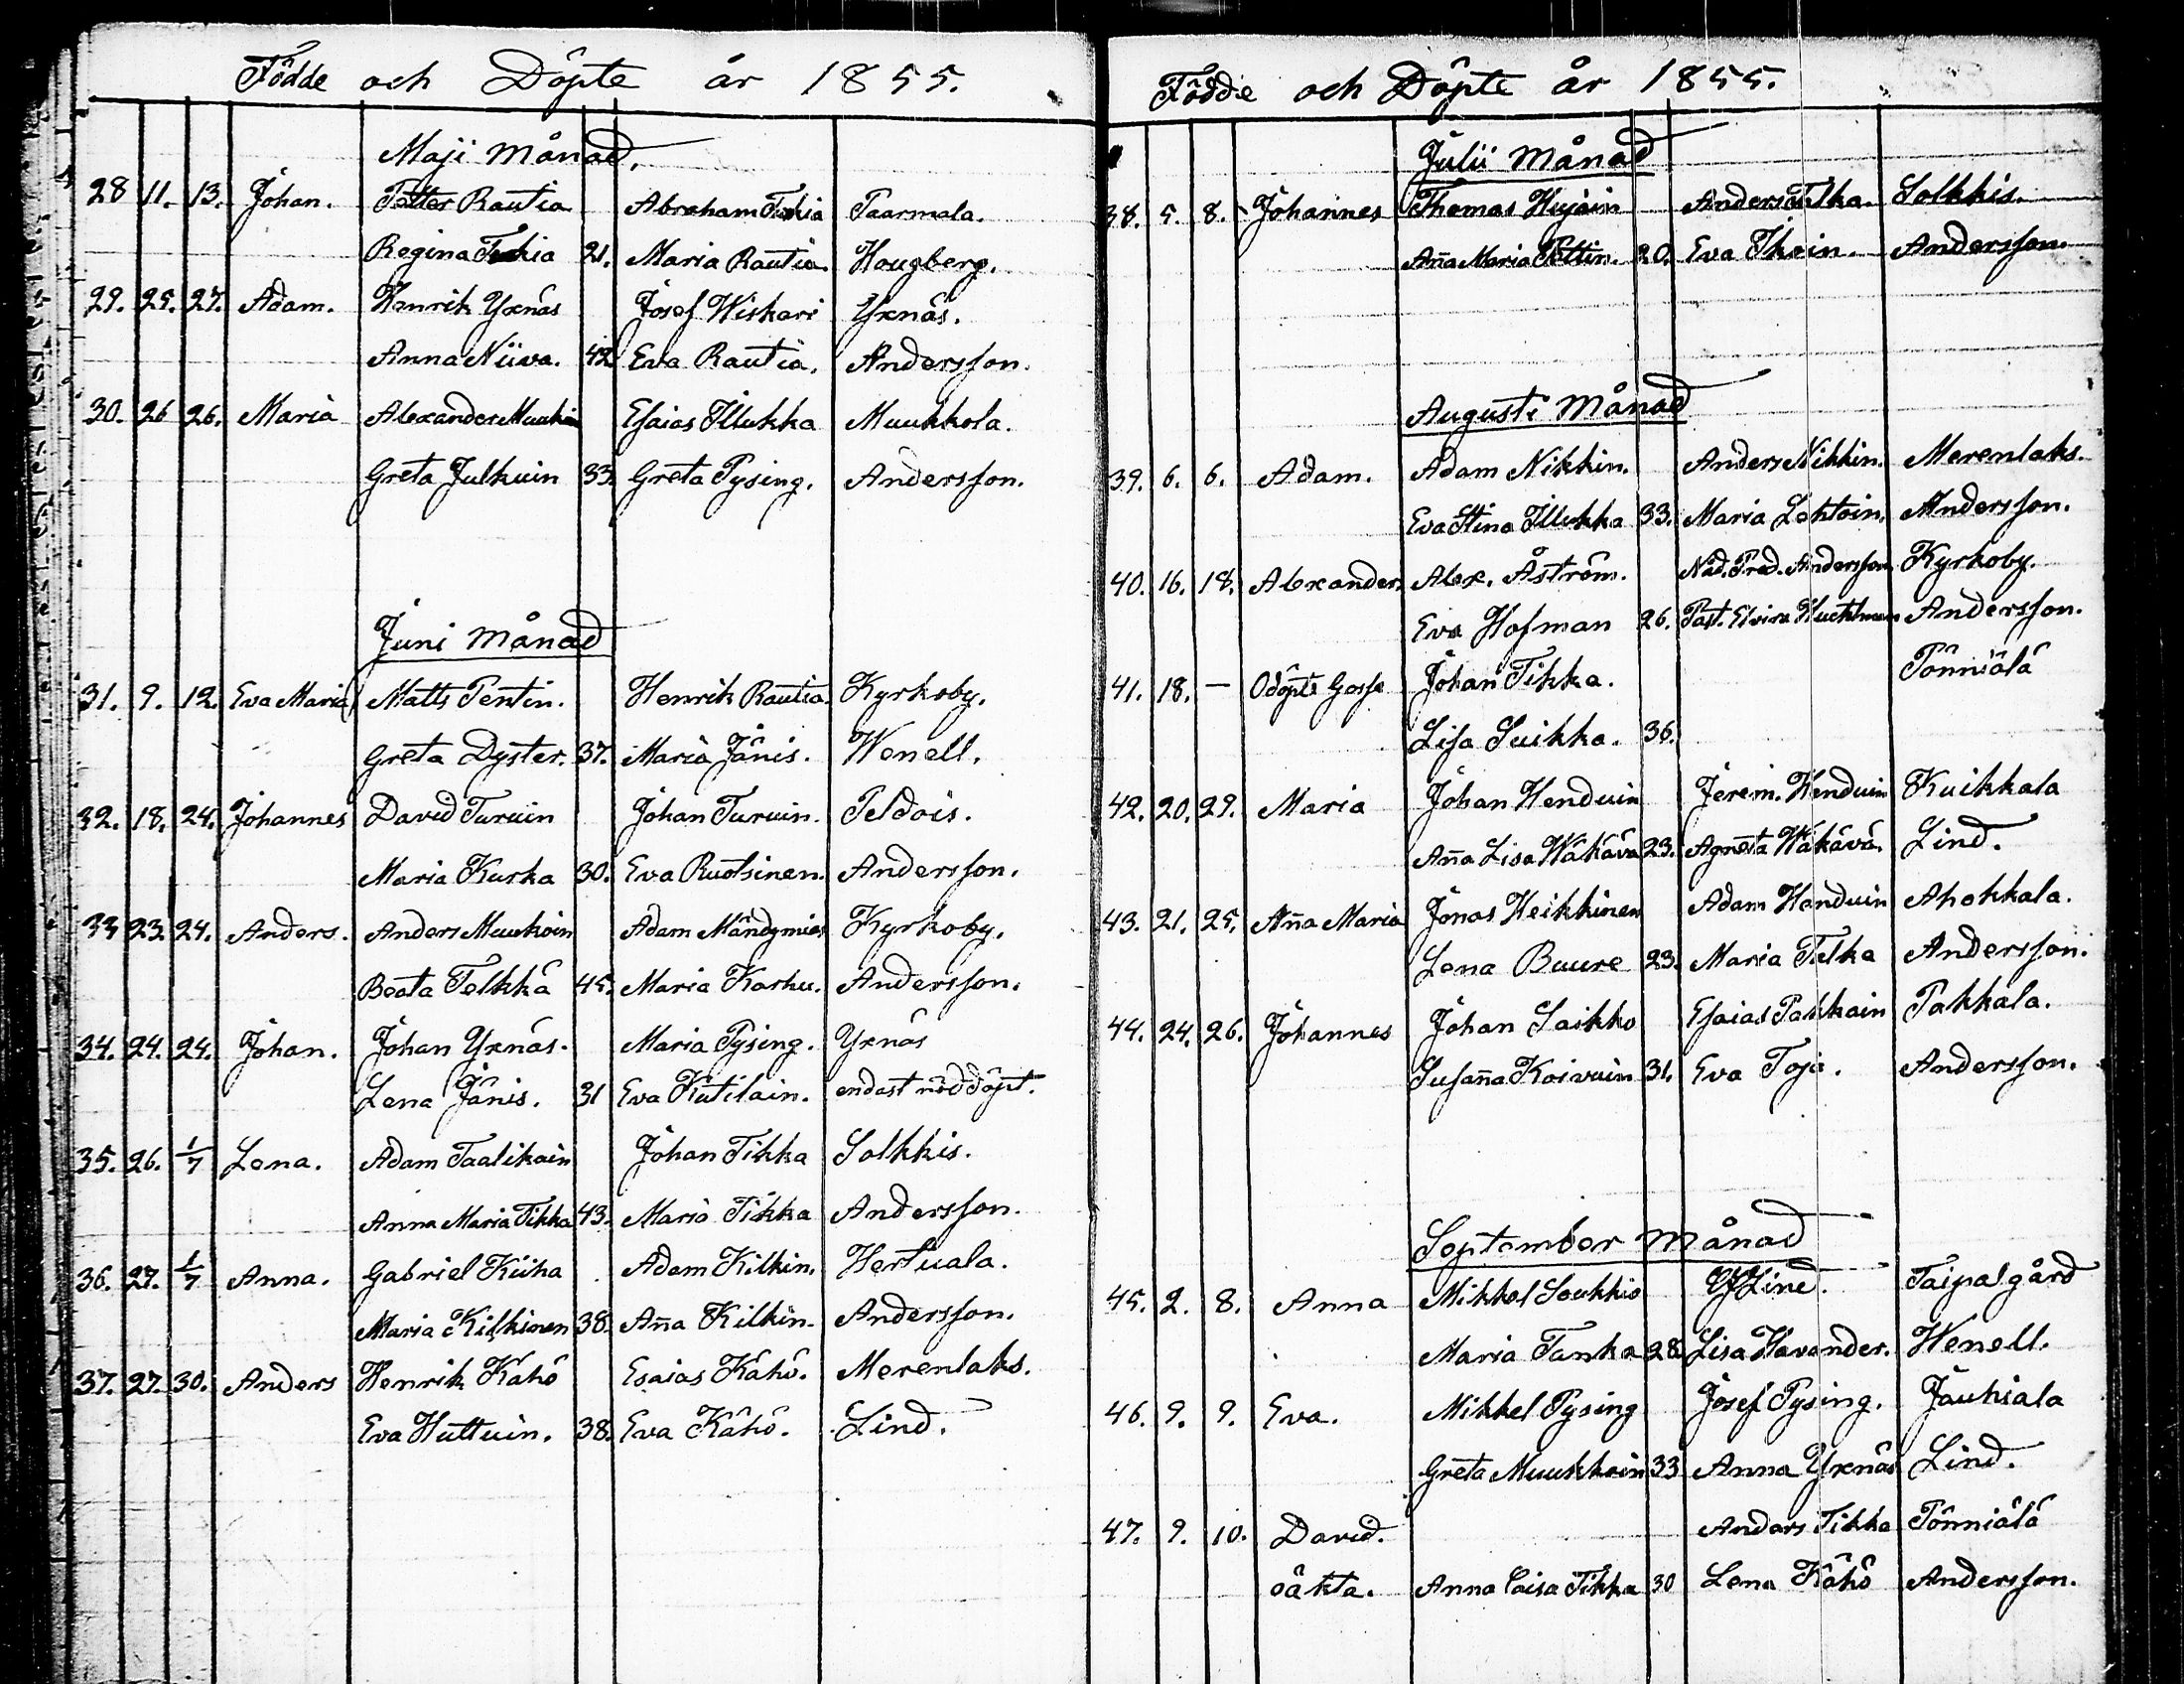 Födde och Döpte år 1855.
Maji Månad.
28 11. 13. Johan. Petter Rautia Abraham Paarmala.
Regina 21. Maria Rautia. Hougberg.
29. 25. 27. Adam. Henrik Yxnäs Josef Wiskari Yxnäs.
Anna Niiva. 42 Eva Rautia. Andersson.
30. 26 26. Maria Alexander Esaias Illukka Muukkola.
Greta Julkuin 33. Greta Pysing. Andersson.
Juni Månad
31. 9. 12. Eva Maria Matts Pentin. Henrik Rautia. Kyrkoby.
Greta Dyster. 37. Maria Jänis. Wenell.
32. 18. 24. Johannes David Turuin Johan Turuin. Peldois.
Maria Kurka 30. Eva Ruotsinen. Andersson.
33 23. 24. Anders. Anders Muukoin Adam Mändymies Kyrkoby.
Beata Telkkä 45. Maria Karhu. Andersson.
34. 24. 24. Johan. Johan Yxnäs. Maria Pysing. Yxnäs
Lena Jänis. 31 Eva Kutilain. endast nöddöpt.
35. 26. 1/7 Lena. Adam Taalikain Johan Tikka Solkkis.
Anna Maria Tikka 43. Maria Tikka Andersson.
36. 27. 1/7 Anna. Gabriel Kiiha Adam Kilkin. Hertuala.
Maria Kilkinen 38. Ana Kilkin. Andersson.
37. 27. 30. Anders Henrik Kähö Esaias Kähö. Merenlaks.
Eva Huttuin. 38. Eva Kähö. Lind.
Födde och Döpte år 1855.
Julii Månad
38. 5. 8. Johannes Thomas Hujain Anders Tulka. Solkkis.
Ana Maria 20. Eva Ikoin. Andersson.
Augusti Månad
39. 6. 6. Adam. Adam Nikkin. Anders Nikkin. Merenlaks.
Eva Stina Illukka 33. Maria Lohtoin. Andersson.
40. 16. 18. Alexander. Alex. Åström. Nåd. Pred. Andersson Kyrkoby.
Eva Hofman 26. Past. Elvira Andersson.
41. 18. — Odöpte Gosse Johan Tikka. Pönniälä
Lisa Suikka. 36.
42. 20. 29. Maria Johan Henduin Jerem. Henduin Kuikkala
Ana Lisa Wäkävä 23. Agneta Wäkävä. Lind.
43. 21. 25. Ana Maria Jonas Heikkinen Adam Handuin Ahokkala.
Lena Buure 23. Maria Tulka Andersson.
44. 24. 26. Johannes Johan Saikko Esaias Pakkain Pakkala.
Susana Koivuin 31. Eva Toja. Andersson.
September Månad
45. 2. 8. Anna Mikkel Soukkio Lind. Taipalgård
Maria Tanka 28. Lisa Havander. Wenell.
46. 9. 9. Eva. Mikkel Pysing Josef Pysing. Jauhiala
Greta Muukkoin 33 Anna Yxnäs Lind.
47. 9. 10. David. Anders Tikka Pönniälä
oäkta. Anna Caisa Tikka 30 Lena Kähö Andersson.